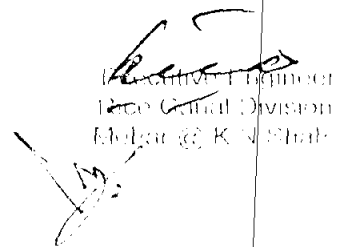 Executive Engineer
Rice Canal Division
Mehar @ K.N Shah